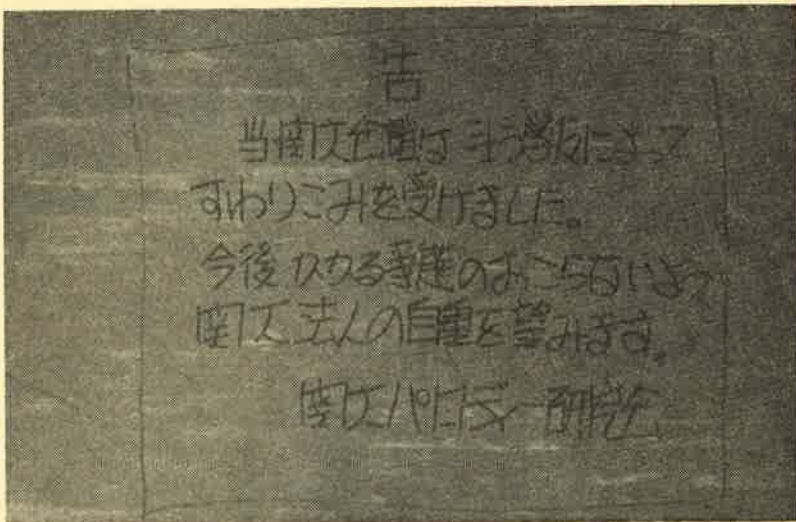 告
当関大は斗う学友によって
すわりこみを受けました。
今後かかる事態のおこらないよう
関大法人の自重を望みます。
関大パロディー研究会